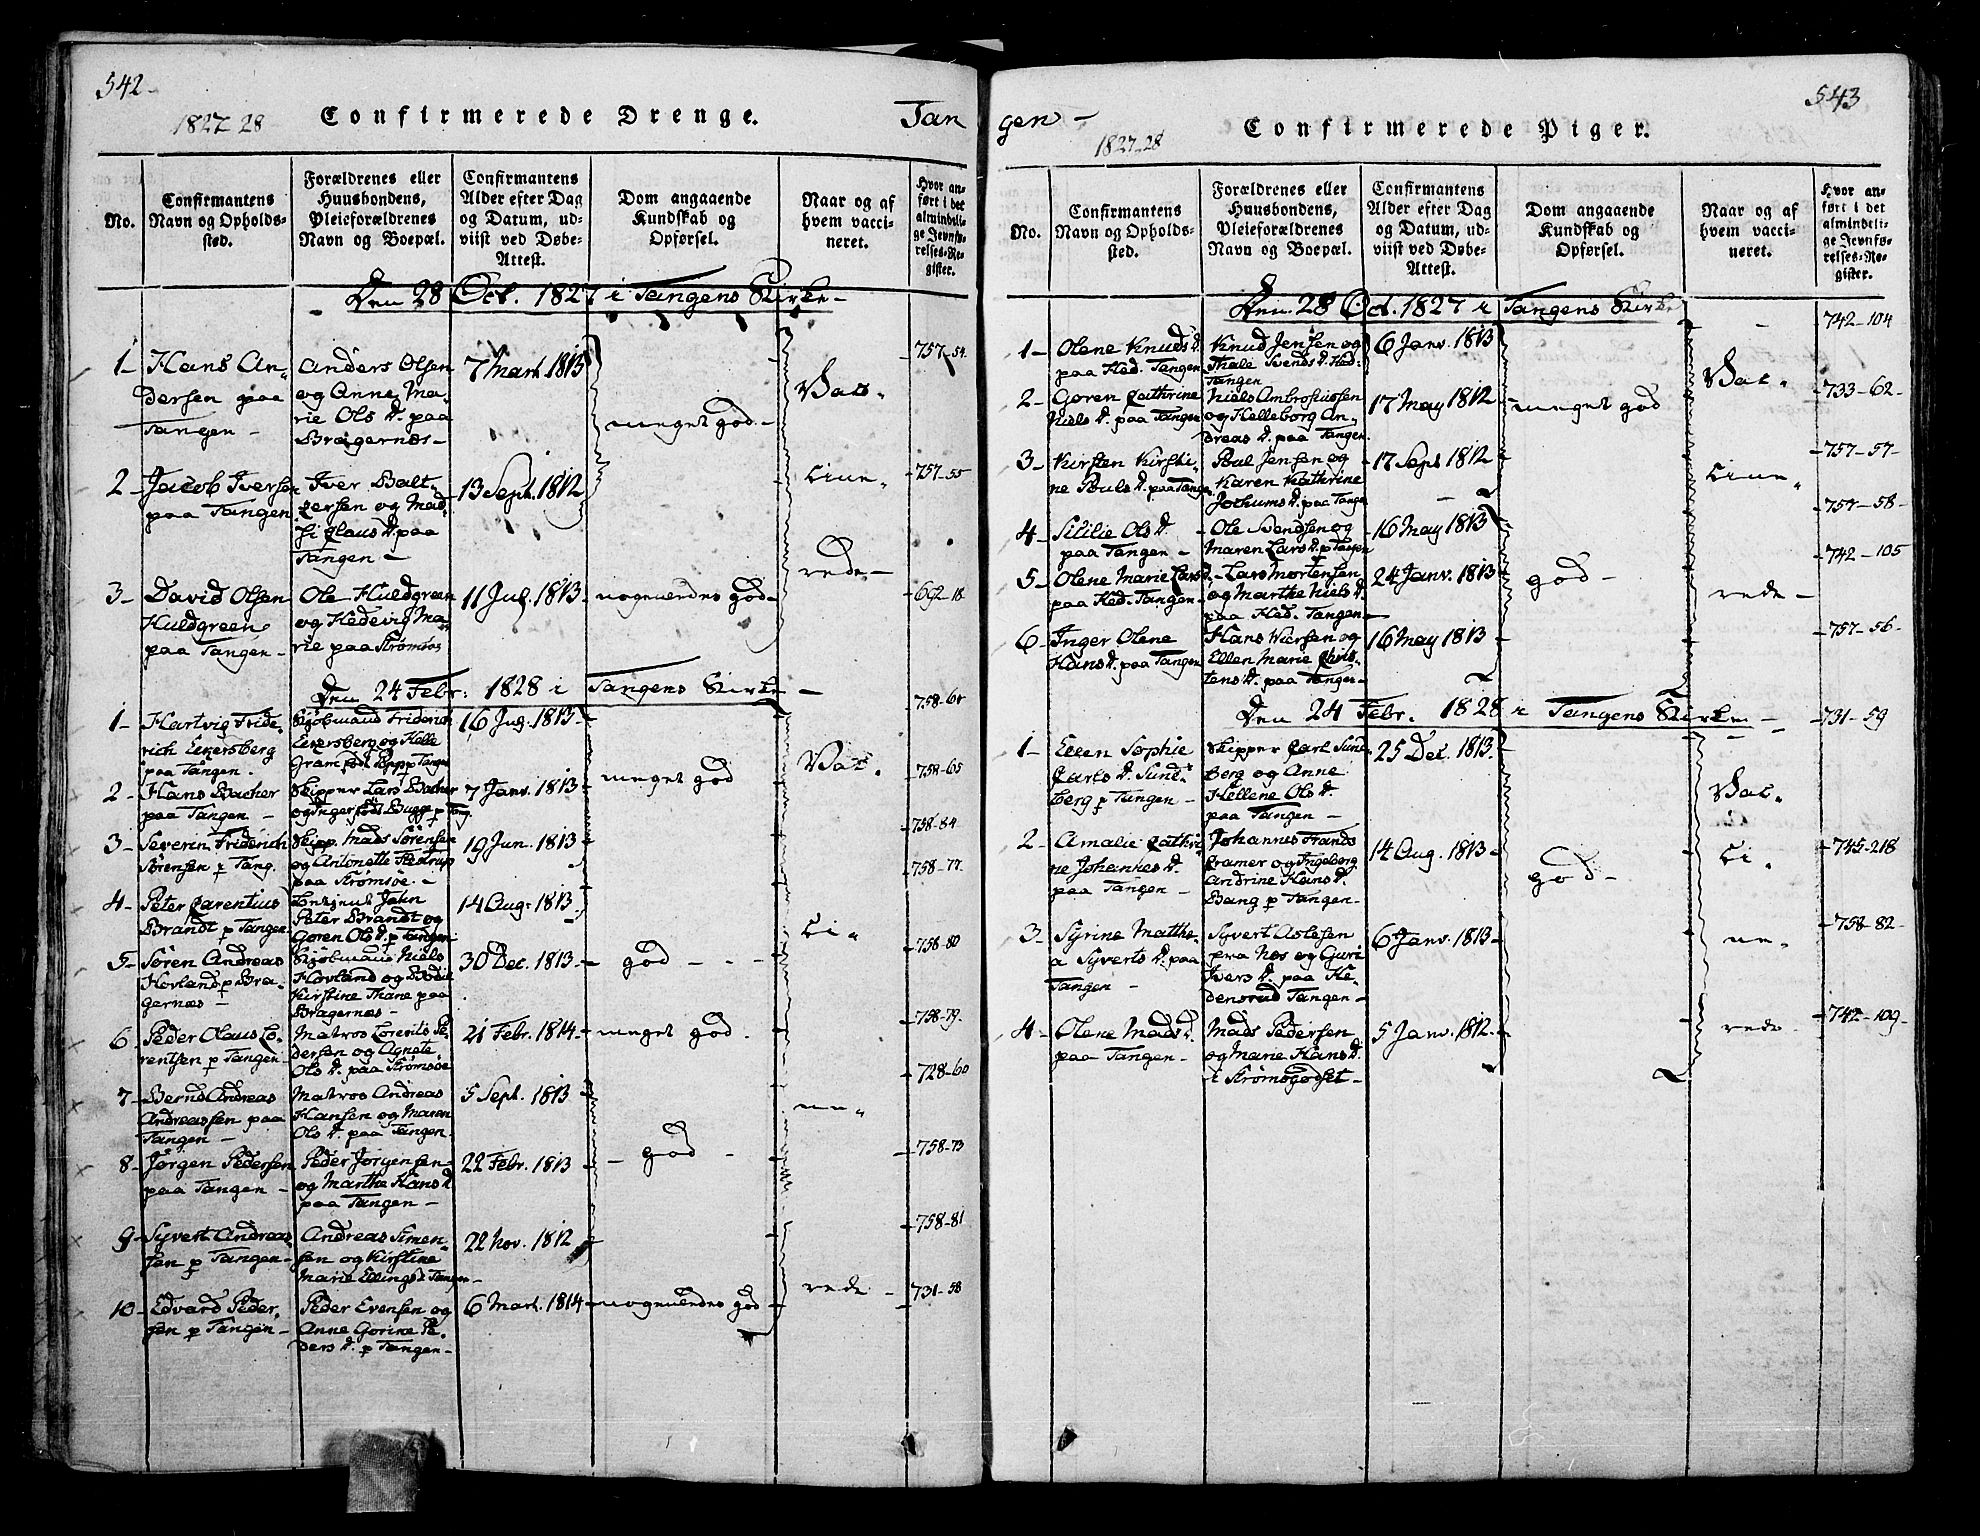 542-
1827-28
Confirmerede Drenge.
Tan
No.
Confirmantens
Navn og Opholds-
sted.
Forældrenes eller
Huusbondens,
Pleieforældrenes
Navn og Boepæl.
Confirmantens
Alder efter Dag
og Datum, ud-
viist ved Døbe-
Attest.
Dom angaaende
Kundskab og
Opførsel.
Naar og af
hvem vacci-
neret.
Hvor an-
ført i det
almindeli-
ge Jevnfø-
relses-Re-
gister.
Den 28 Oct. 1827 i Tangens Kirke-
1- Hans An-
dersen paa
Tangen-
Anders Olsen
og Anne Ma-
rie Ols D. paa
Bragernæs-
7 Mart. 1813
meget god-
Vac-
757-54.
2- Jacob Iversen
paa Tangen
Iver Balt-
zersen og Mad-
si Claus D. paa
Tangen-
13 Sept. 1812
cine-
757-55
3- David Olsen
Huldgreen
paa Tangen-
Ole Huldgreen
og Hedevig Ma-
rie paa Strømsøe
11 Jul. 1813-
nogenledes god-
rede-
692-18
Den 24 Febr: 1828 i Tangens Kirke-
1- Hartvig Fride-
rich Eckersberg
paa Tangen.
Kjøbmand Friderich
Eckersberg og Helle
Gram født Popp p Tangen
16 Jug. 1813-
meget god
Vac.
758-64
2- Hans Bacher
paa Tangen-
Skipper Lars Bacher
og Inger født Bugge p Tang.
7 Janv. 1813-
758-65
3- Severin Friderich
Sørensen p Tang.
Skipp. Mads Sørensen
og Antonette Tostrup
paa Strømsøe.-
19 Jun. 1813-
758-84
4- Peter Carentius
Brandt p Tangen.
John
Peter Brandt og
Goren Ols D. p Tangen
14 Aug. 1813-
ci-
758-77
5- Søren Andreas
Hovland p Bra-
gernæs-
Kjøbmand Niels
Hovland og Bodil
Kirstine Thane paa
Bragernæs-
30 Dec. 1813-
god-
758-80
6- Peder Olaus Lo-
rentsen p Tangen-
Matros Lorents Pe-
dersen og Agnete
Ols D. paa Strømsøe
21 Febr. 1814-
meget god
758-79-
7- Bernd Andreas
Andreassen paa
Tangen-
Matros Andreas
Hansen og Maren
Ols D. paa Tangen.
5 Sept. 1813
ne-
728-60
8- Jørgen Pedersen
paa Tangen-
Peder Jørgensen-
og Marthe Hans D.
paa Tangen-
22 Febr. 1813
- god -
758-73
9- Syvert Andreas-
sen p Tangen-
Andreas Simen-
sen og Kirstine
Marie Ellings D. Tangen-
22 Nov. 1812
758-81
10- Edvard Peder-
sen p Tangen-
Peder Evensen og
Anne Gorine Pe-
ders D. p Tangen-
6 Mart. 1814-
nogenledes god
rede-
731-58
543
gen-
1827-28
Confirmerede Piger.
No.
Confirmantens
Navn og Opholds-
sted.
Forældrenes eller
Huusbondens,
Pleieforældrenes
Navn og Boepæl.
Confirmantens
Alder efter Dag
og Datum, ud-
viist ved Døbe-
Attest.
Dom angaaende
Kundskab og
Opførsel.
Naar og af
hvem vacci-
neret.
Hvor an-
ført i det
almindeli-
ge Jevnfø-
relses-Re-
gister.
Den 28 Oct. 1827 i Tangens Kirke
1- Olene Knuds D.
paa Hed. Tangen
Knud Jensen og
Thale Svends D. Hed.
Tangen
6 Janv. 1813
742-104
2- Goren Cathrine
Niels D. paa Tangen
Niels Ambrosiussen
og Helleborg An-
dreas D. paa Tangen
17 May 1812
meget god
Vac-
733-62-
3- Kirsten Kirsti-
ne Pouls D. paa Tangen
Poul Jensen og
Karen Kathrine
Jochums D. paa Tangen
17 Sept 1812
cine-
757-57-
4- Sicilie Ols D.
paa Tangen-
Ole Svendsen og
Maren Lars D. p Tangen
16 May 1813
757-58-
5- Olene Marie Lars D.
paa Hed. Tangen-
Lars Mortensen
og Marthe Niels D.
paa Hed. Tangen-
24 Janv. 1813
god-
rede-
742-105
6- Inger Olene
Hans D. paa Tangen
Hans Iversen og
Ellen Marie Chris-
tens D. paa Tangen-
16 May 1813
757-56-
Den 24 Febr. 1828 i Tangens Kirke-
1- Ellen Sophie
Carls D. Sund-
berg p Tangen-
Skipper Carl Sund-
berg og Anne
Hellene Ols D.
paa Tangen-
25 Dec. 1813-
Vac-
731-59
2- Amalie Cathri-
ne Johannes D.
paa Tangen-
Johannes Frands
Cramer og Ingeborg
Andrine Hans D.
Bang p Tangen-
14 Aug. 1813-
god-
ci-
745-218
3- Syrine Mathe-
a Syverts D. paa
Tangen-
Syvert Aslesen
fra Næs og Guri
Ivers D. paa He-
densrud Tangen-
6 Janv. 1813-
ne-
758-82-
4- Olene Mads D.
paa Tangen-
Mads Pedersen
og Marie Hans D.
i Strømsgodset-
5 Janv. 1812-
rede-
742-109-